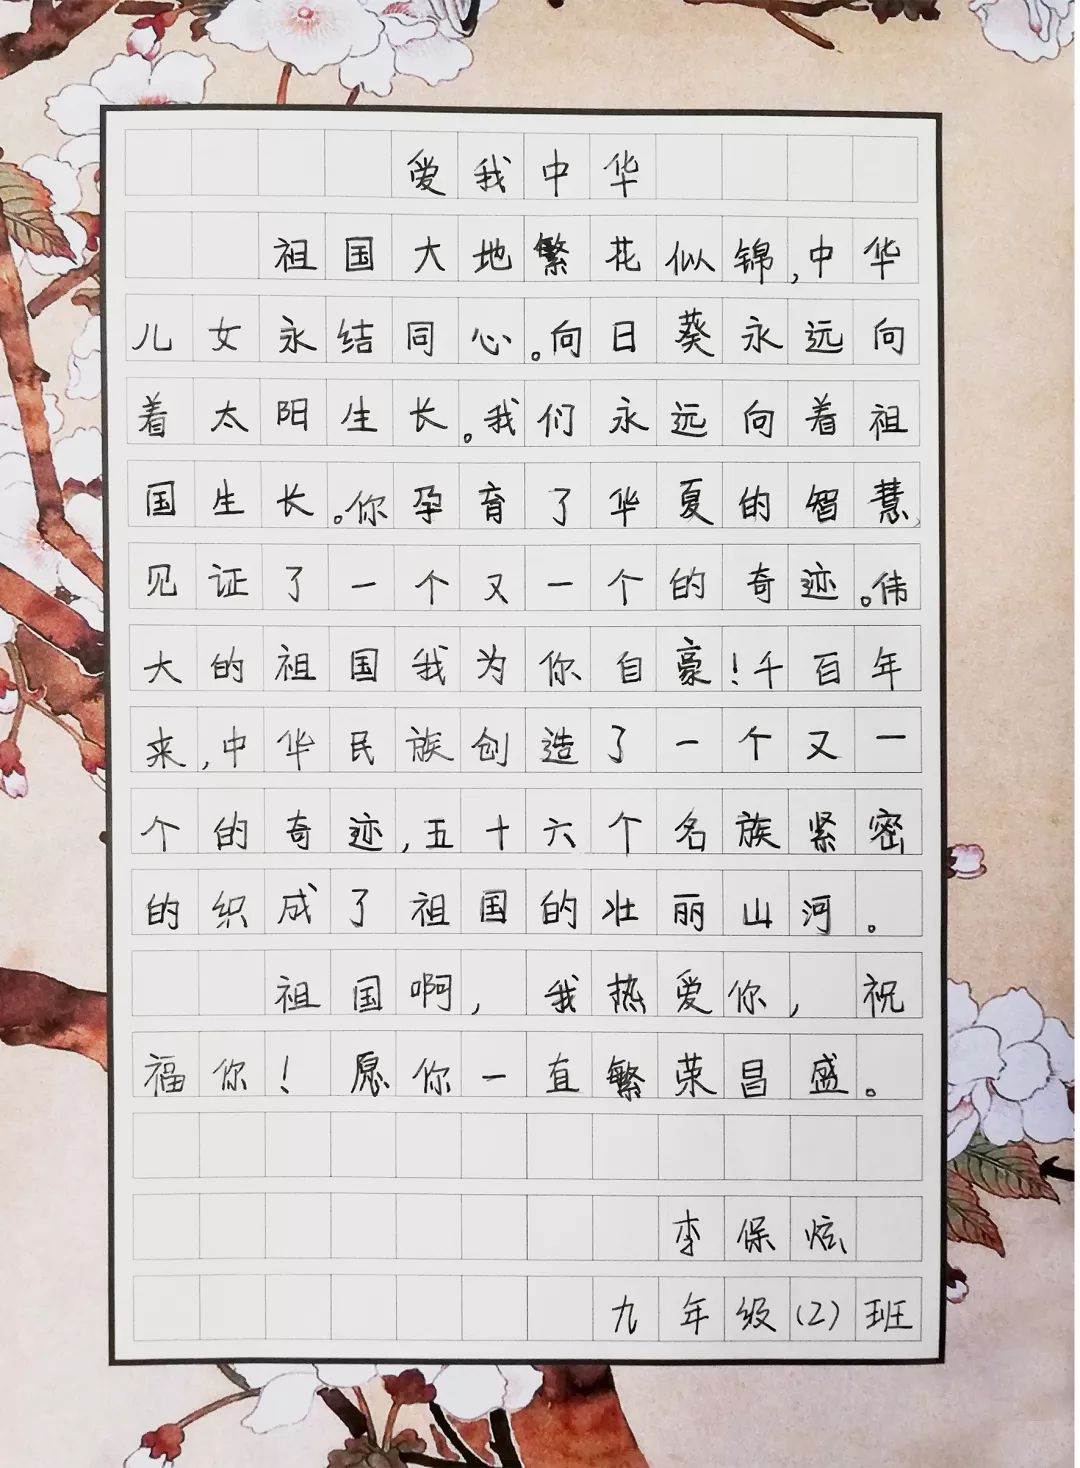 爱我中华
祖国大地繁花似锦,中华
儿女永结同心。向日葵永远向
着太阳生长。我们永远向着祖
国生长。你孕育了华夏的智慧,
见证了一个又一个的奇迹。伟
大的祖国我为你自豪!千百年
来,中华民族创造了一个又一
个的奇迹,五十六个名族紧密
的织成了祖国的壮丽山河。
祖国啊,我热爱你,祝
福你!愿你一直繁荣昌盛。
李保炫
九年级(2)班